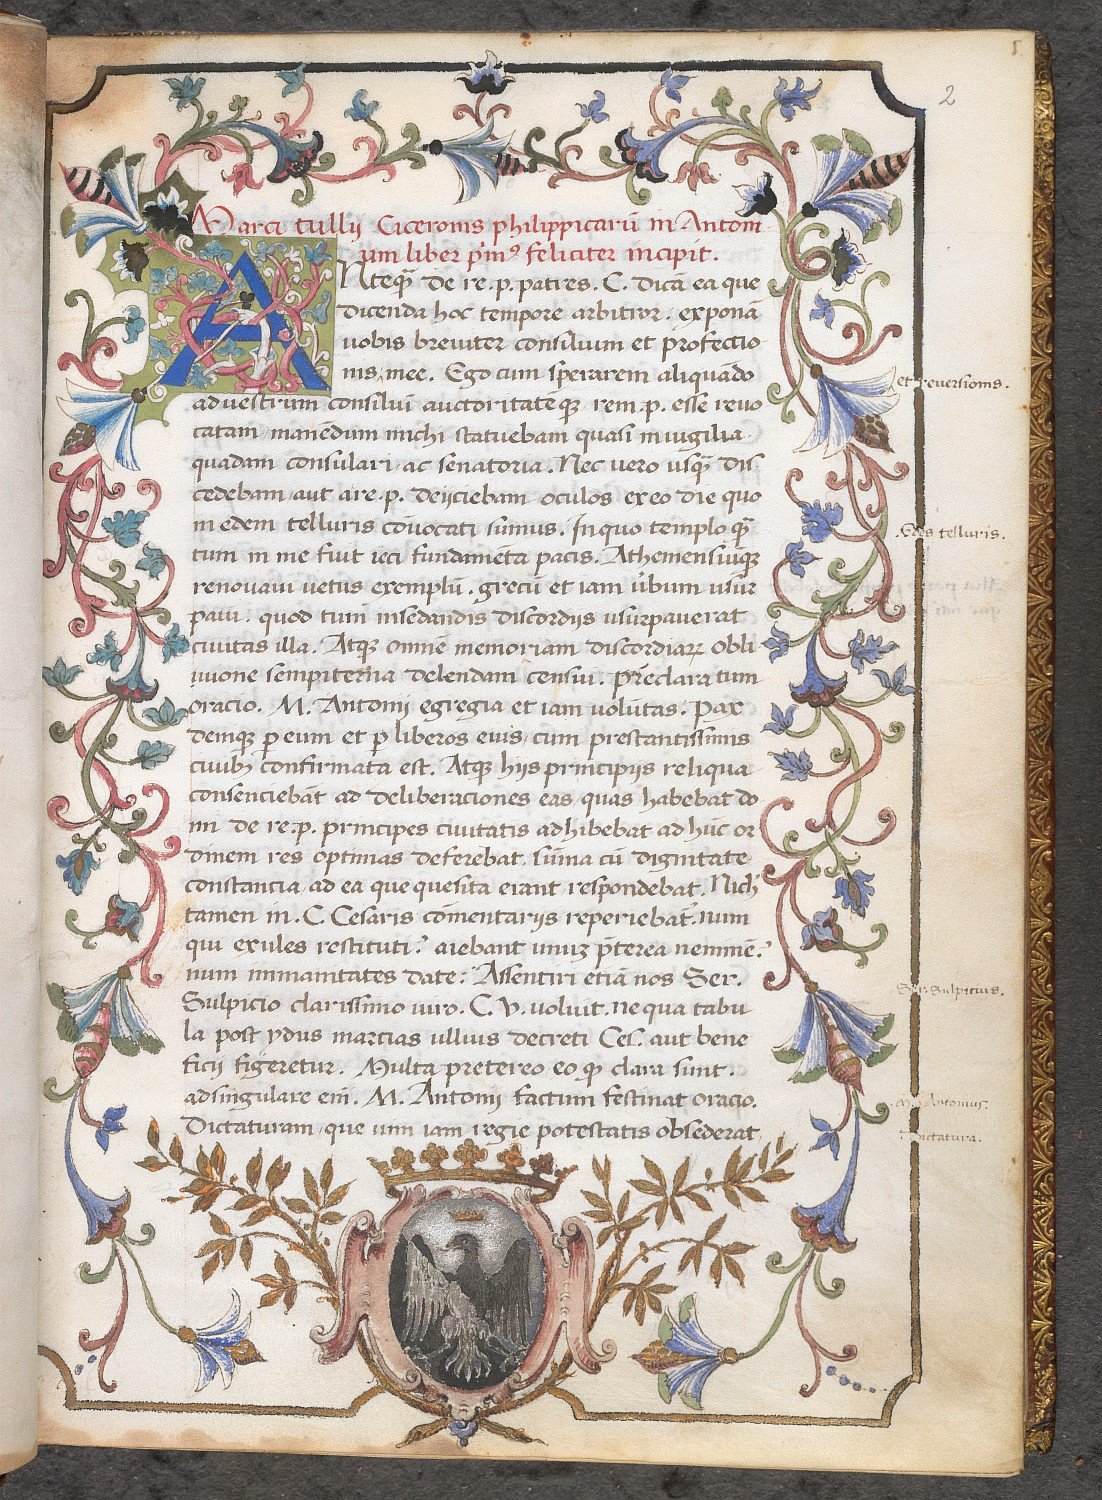 2
Marci tullij Ciceronis philippicarū in Antoni
um liber p̄mꝰ feliciter incipit.
ANteqꝫ de re.p. patres. C. dicā ea que
dicenda hoc tempore arbitror. exponā
uobis breuiter consilium et profectio
nis mee. Ego cum sperarem aliquādo
ad uestrum consiliū auctoritatēqꝫ rem.p. esse reuo
catam manēdum michi statuebam quasi in uigilia
quadam consulari ac senatoria. Nec uero usqꝫ dis
cedebam aut a re.p. deijciebam oculos ex eo die quo
in edem telluris cōuocati sumus. In quo templo qꝫ
tum in me fuit ieci fundamēta pacis. Atheniensiūqꝫ
renouaui uetus exemplū. grecū et iam ūbum usur
paui. quod tum in sedandis discordijs usurpauerat
ciuitas illa. Atqꝫ omnē memoriam discordiaꝝ obli
uione sempiterna delendam censui. Prēclara tum
oracio. M. Antonij egregia et iam uolūtas. Pax
deniqꝫ ꝑ eum et ꝑ liberos eius cum prestantissimis
ciuibꝫ confirmata est. Atqꝫ hijs principijs reliqua
consenciebāt ad deliberaciones eas quas habebat do
mi de re.p. principes ciuitatis adhibebat ad hūc or
dinem res optimas deferebat. sūma cū dignitate
constancia ad ea que quesita erant respondebat. Nich
tamen in. C. Cesaris cōmentarijs reperiebat̄. num
qui exules restituti? aiebant unuꝫ p̄terea neminē?
num immunitates date: Assentiri etiā nos Ser.
Sulpicio clarissimo uiro. C. V. uoluit. ne qua tabu
la post ydus marcias ullius decreti Ces. aut bene
ficij figeretur. Multa pretereo eo qꝫ clara sunt.
ad singulare eni. M. Antonij factum festinat oracio.
Dictaturam que uim iam regie potestatis obsederat
et reuersionis.
Edes telluris.
Ser. Sulpicius.
M. Antonius.
Dictatura.